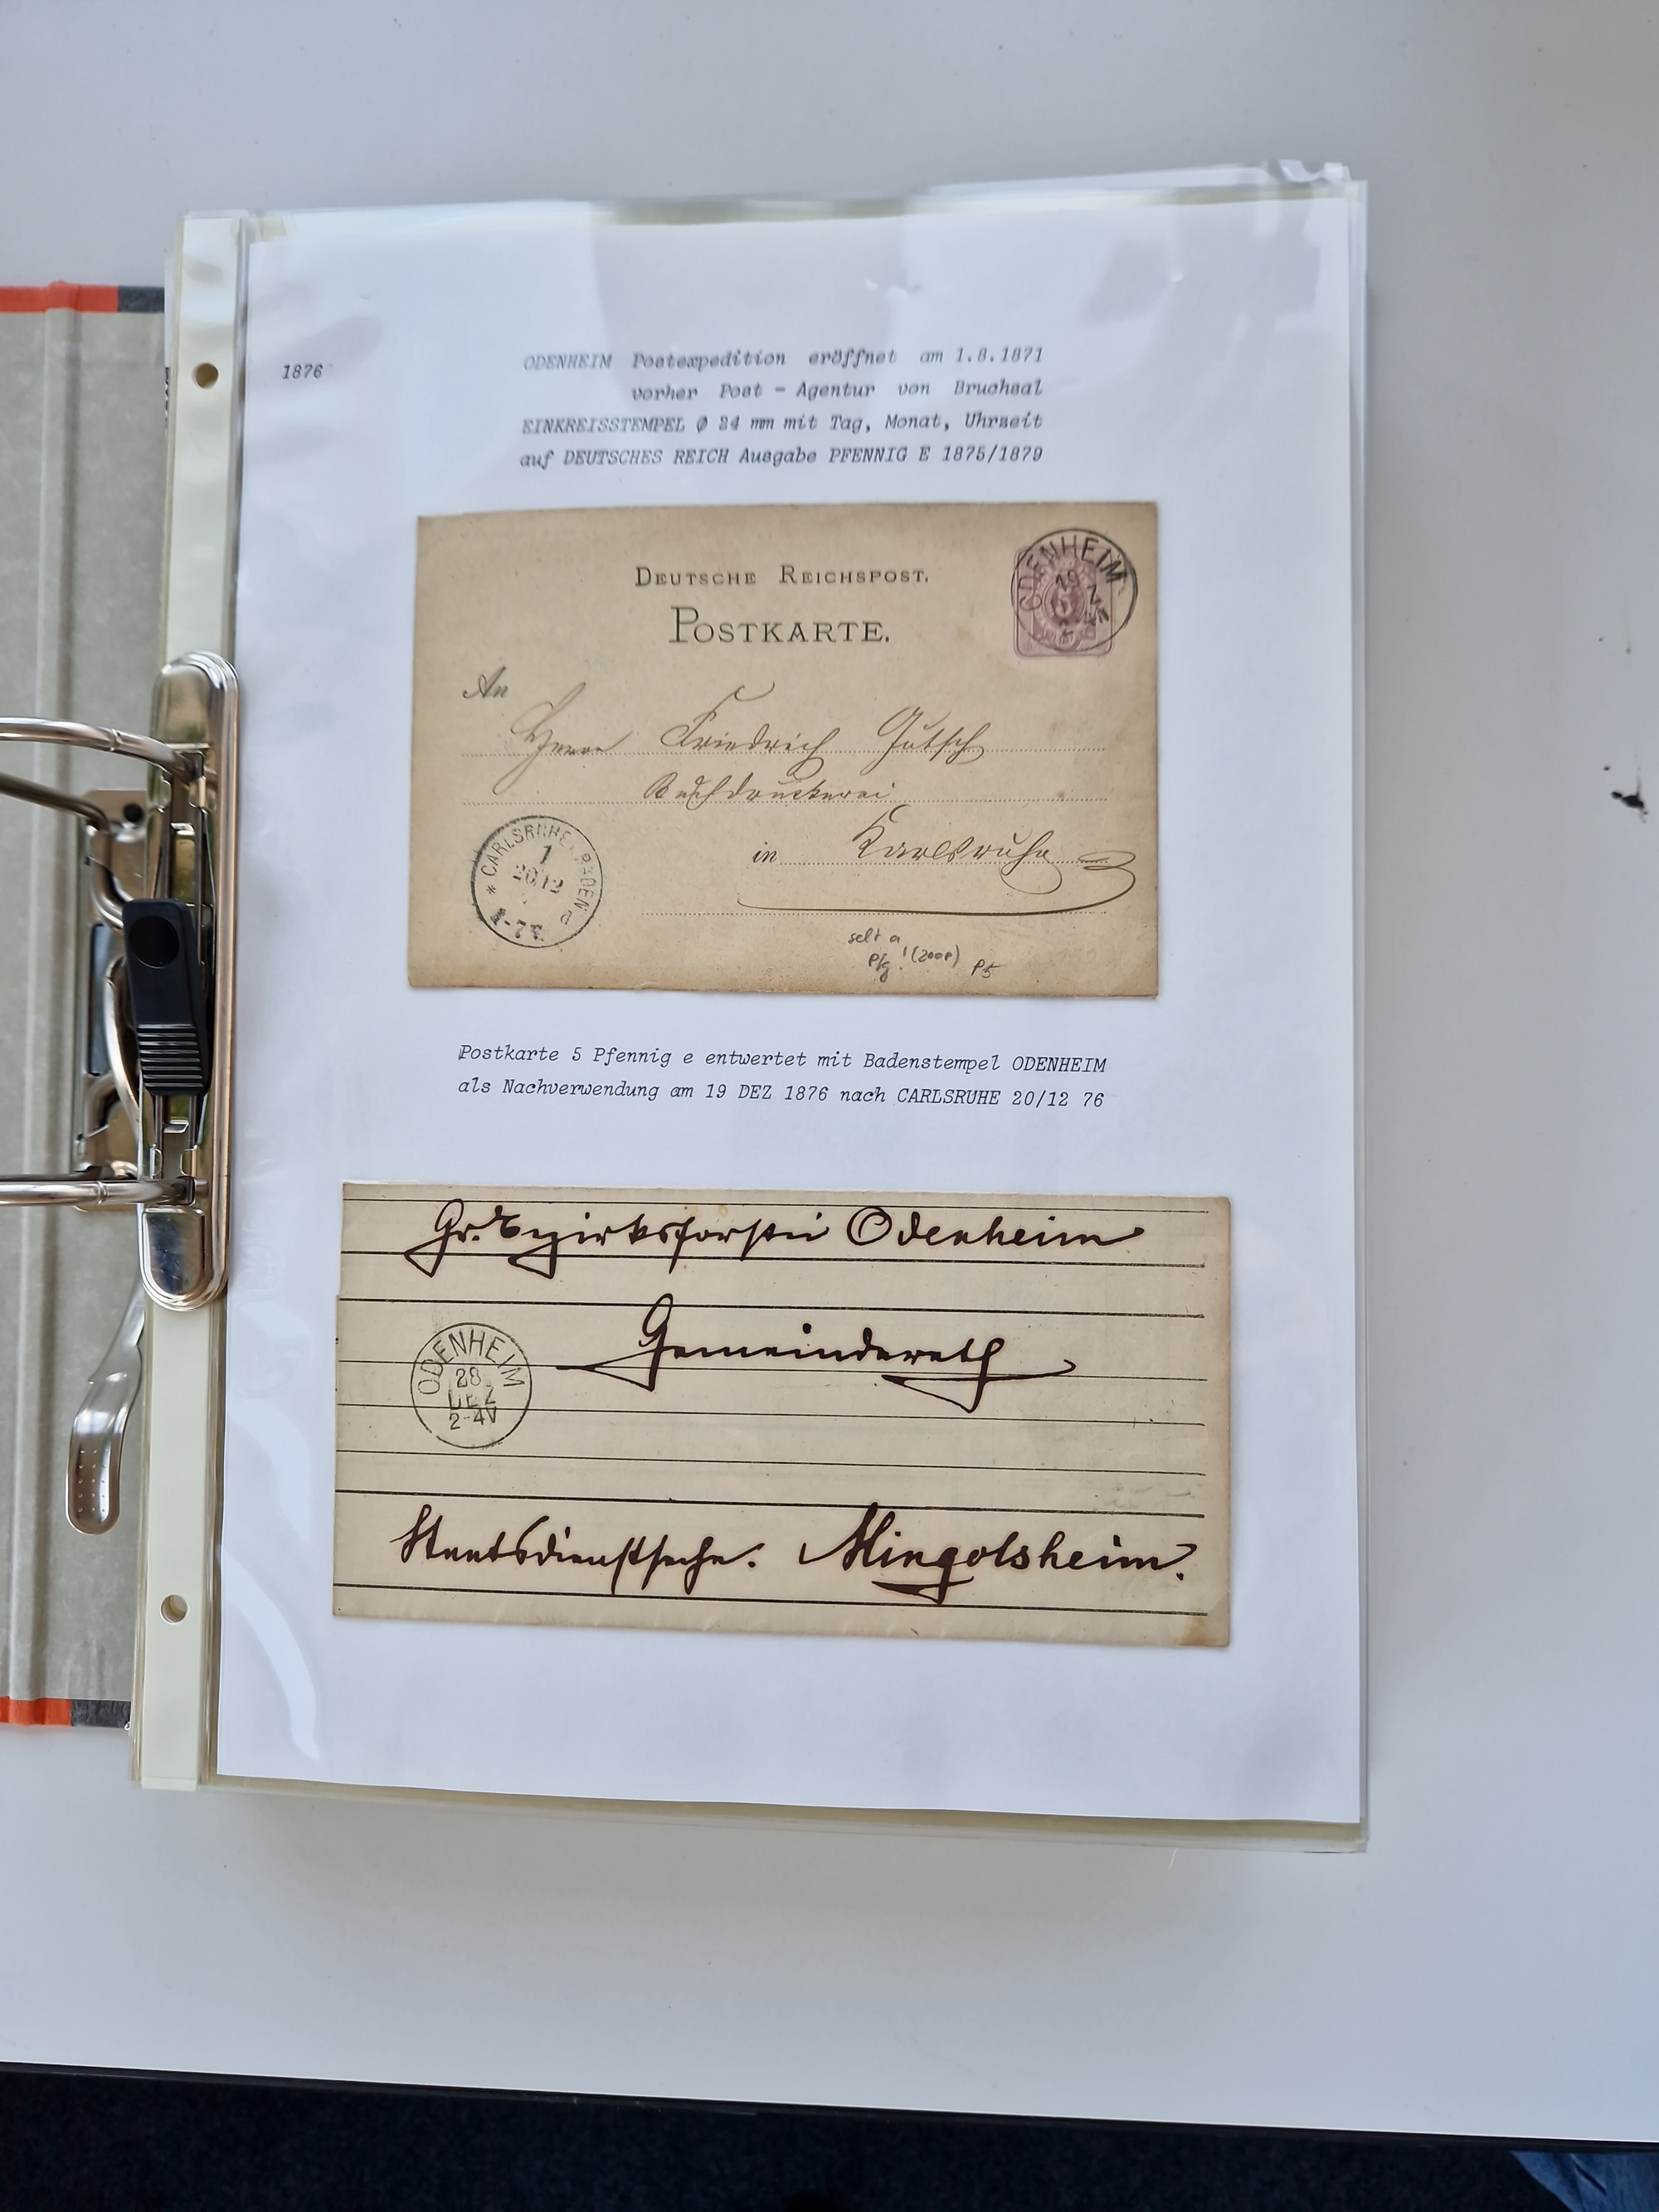 1876
ODENHEIM Postexpedition eröffnet am 1.8.1871
vorher Post - Agentur von Bruchsal
EINKREISSTEMPEL Ø 24 mm mit Tag, Monat, Uhrzeit
auf DEUTSCHES REICH Ausgabe PFENNIG E 1875/1879
DEUTSCHE REICHSPOST.
POSTKARTE.
ODENHEIM
19
5
An
Herrn Friedrich Gutsch
Buchdruckerei
in Karlsruhe
CARLSRUHE I. BADEN
1
20 12
selt a
Pfg! (200P) P5
Postkarte 5 Pfennig e entwertet mit Badenstempel ODENHEIM
als Nachverwendung am 19 DEZ 1876 nach CARLSRUHE 20/12 76
Gr. Bezirksforstei Odenheim
Gemeinderath
ODENHEIM
28
DEZ
2-4V
Staatsdienstsache. Mingolsheim.